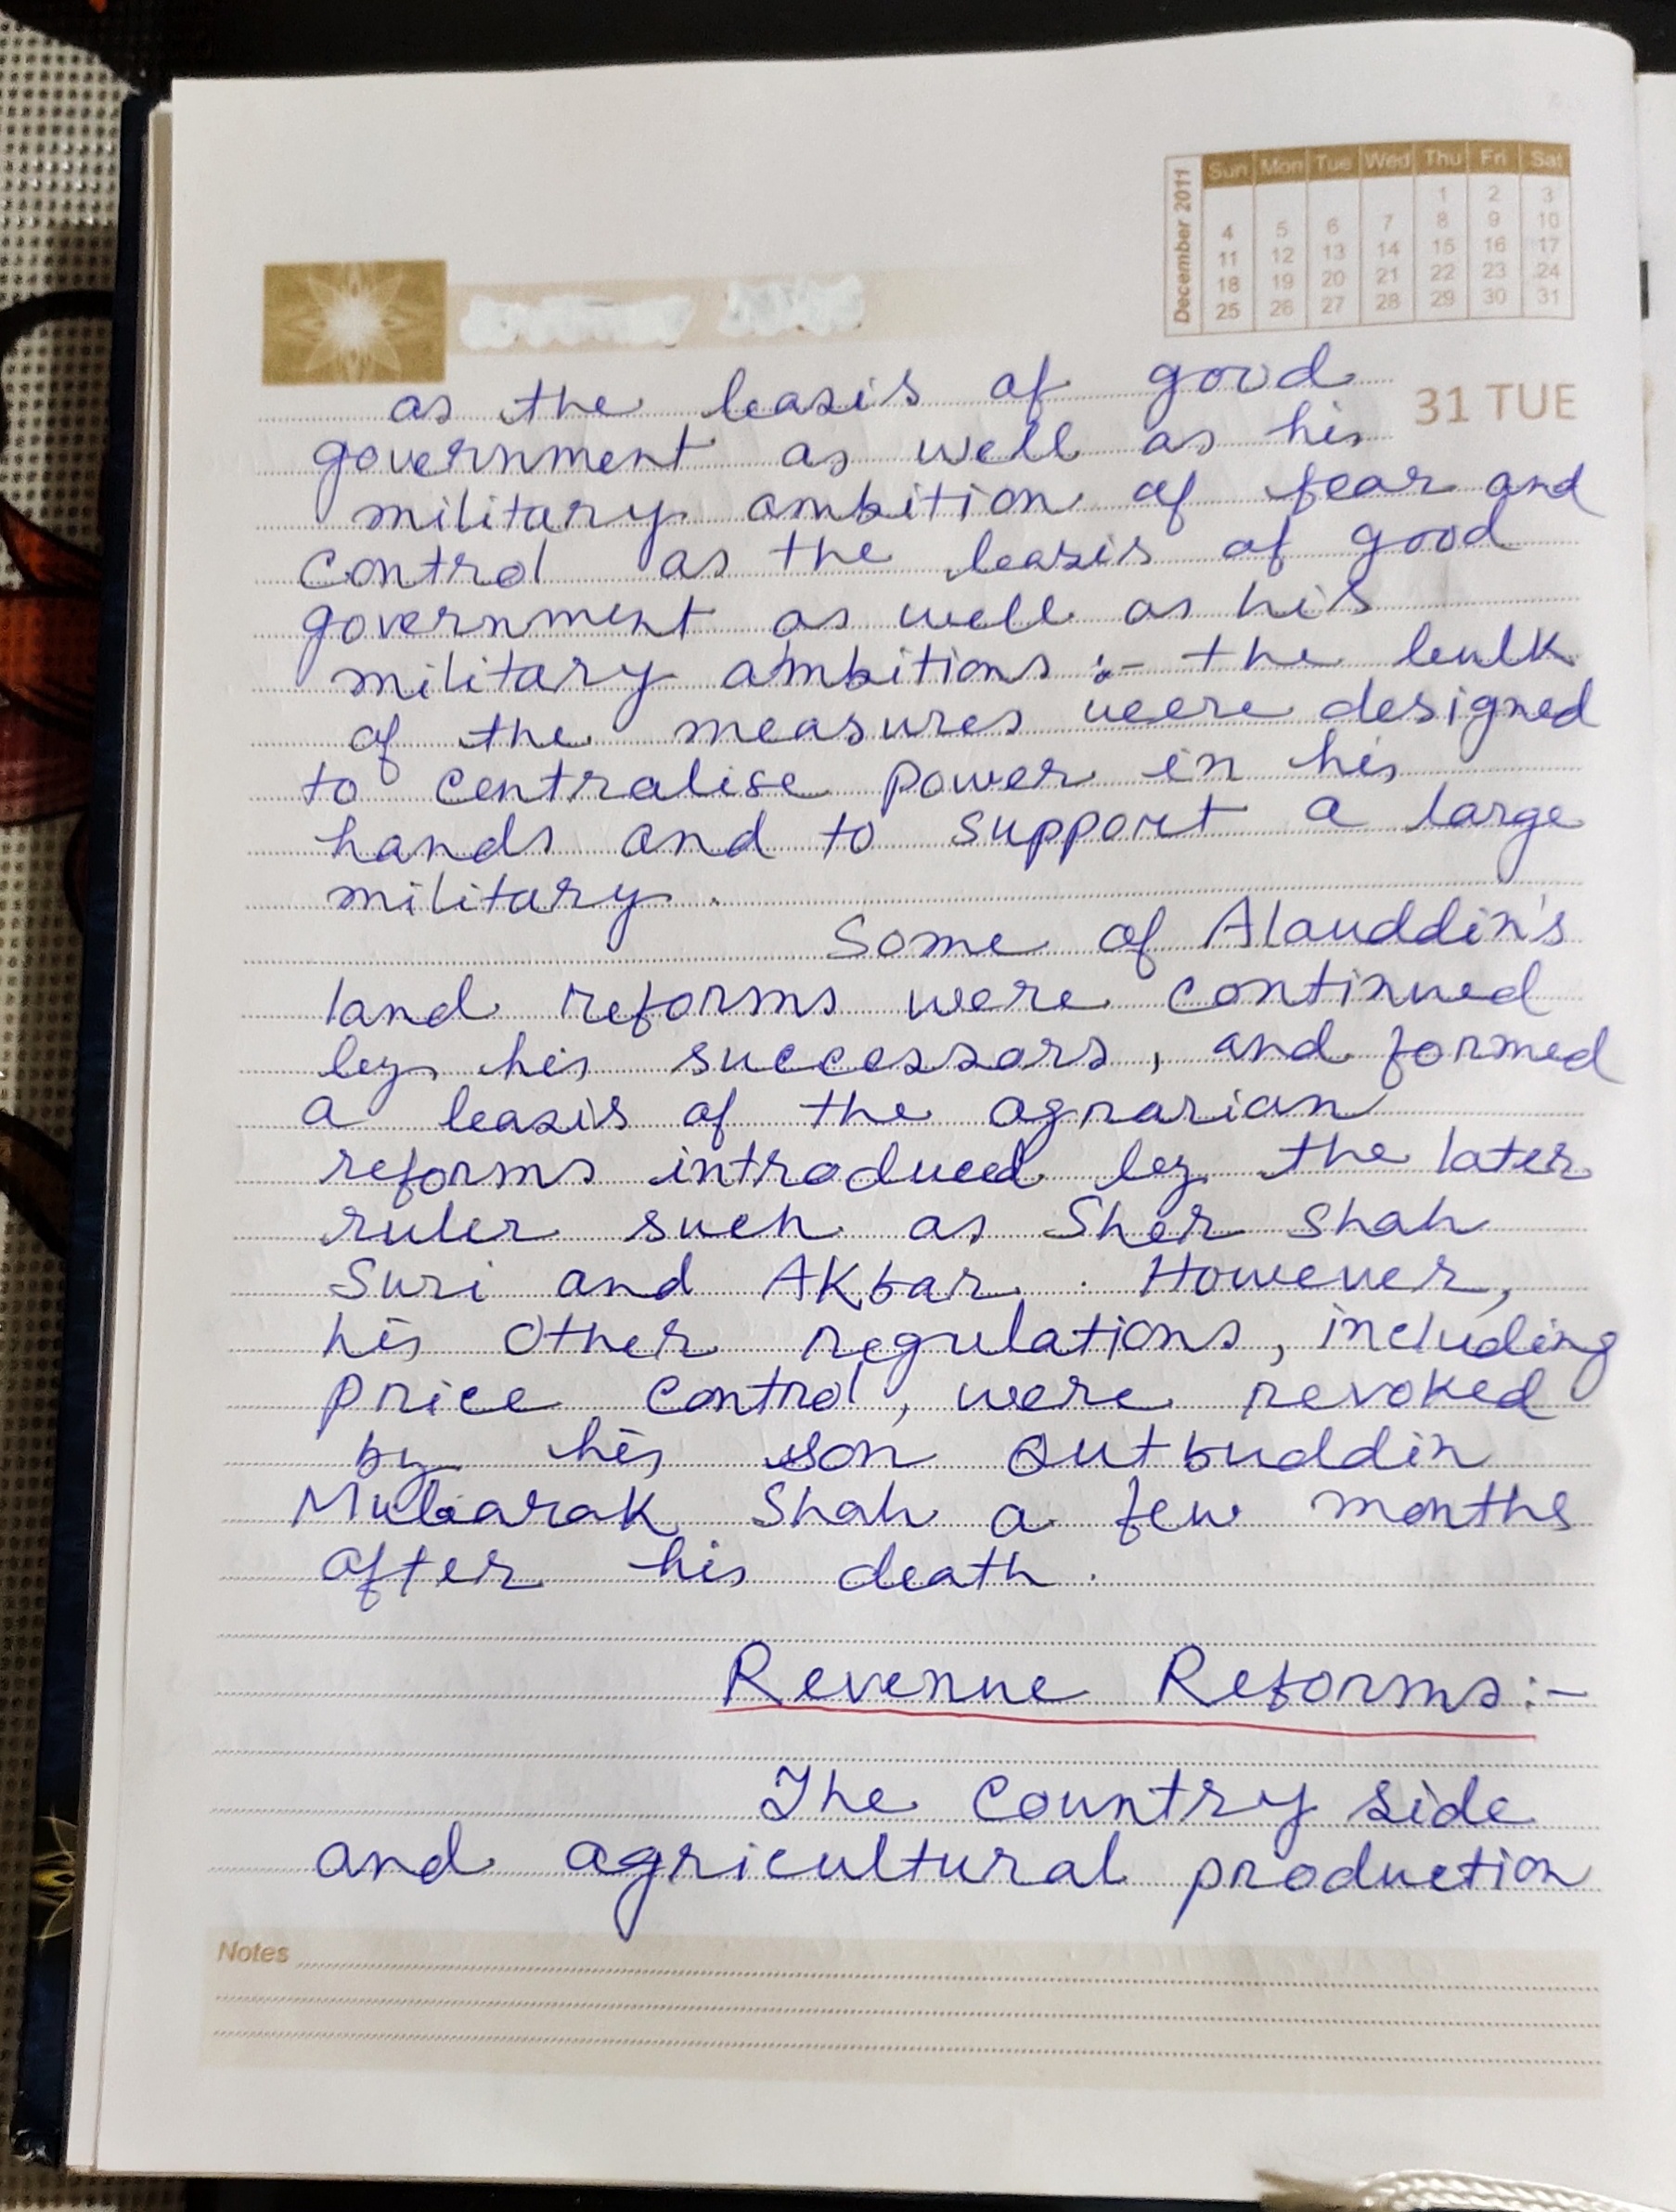 December 2011
Sun Mon Tue Wed Thu Fri Sat
1 2 3
4 5 6 7 8 9 10
11 12 13 14 15 16 17
18 19 20 21 22 23 24
25 26 27 28 29 30 31
31 TUE
as the basis of good
government as well as his
military ambition of fear and
control as the basis of good
government as well as his
military ambitions :- the bulk
of the measures were designed
to centralise power in his
hands and to support a large
military.
Some of Alauddin's
land reforms were continued
by his successors, and formed
a basis of the agrarian
reforms introduced by the later
ruler such as Sher Shah
Suri and Akbar. However,
his other regulations, including
price control, were revoked
by his son Qutbuddin
Mubarak Shah a few months
after his death.
Revenue Reforms:-
The country side
and agricultural production
Notes